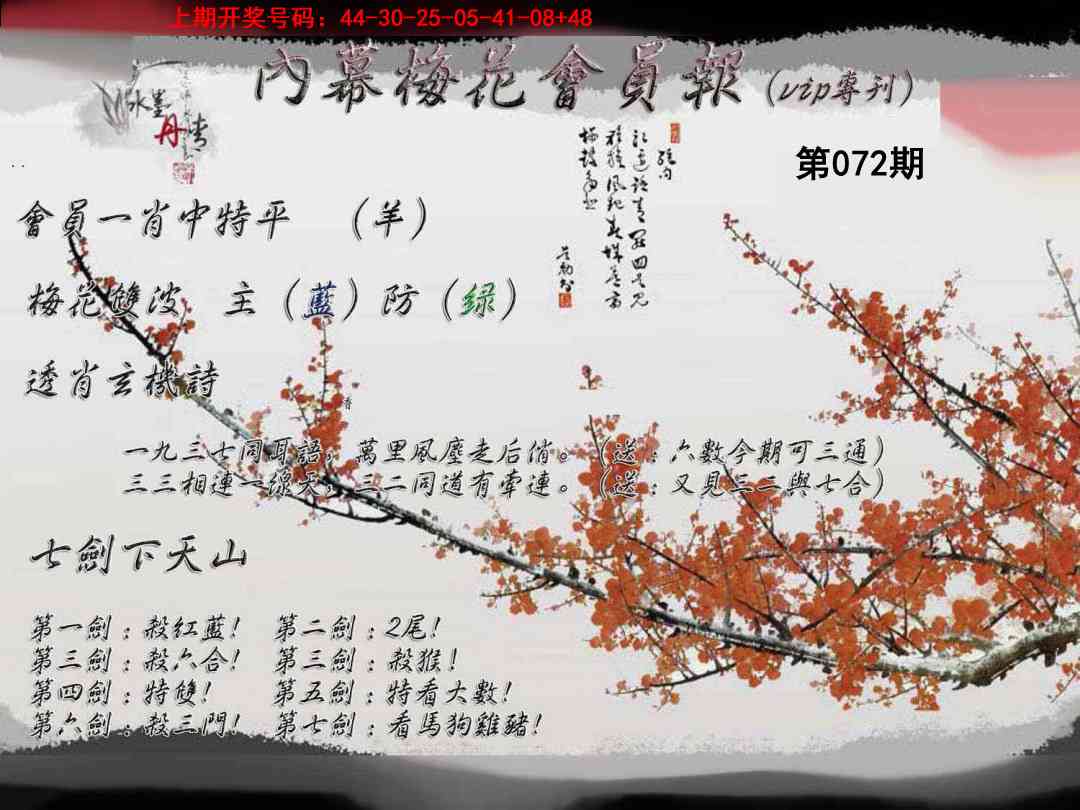 上期开奖号码：44-30-25-05-41-08+48
內幕梅花會員報(vip專刊)
水墨丹青
第072期
會員一肖中特平 （羊）
梅花雙波 主（藍）防（緑）
透肖玄機詩
香
一九三七同耳語，萬里風塵走后俏。（送：六數今期可三通）
三三相連一線天，三二同道有牽連。（送：又見三二與七合）
七劍下天山
第一劍：殺紅藍！ 第二劍：2尾！
第三劍：殺六合！ 第三劍：殺猴！
第四劍：特雙！ 第五劍：特看大數！
第六劍：殺三門！ 第七劍：看馬狗雞豬！